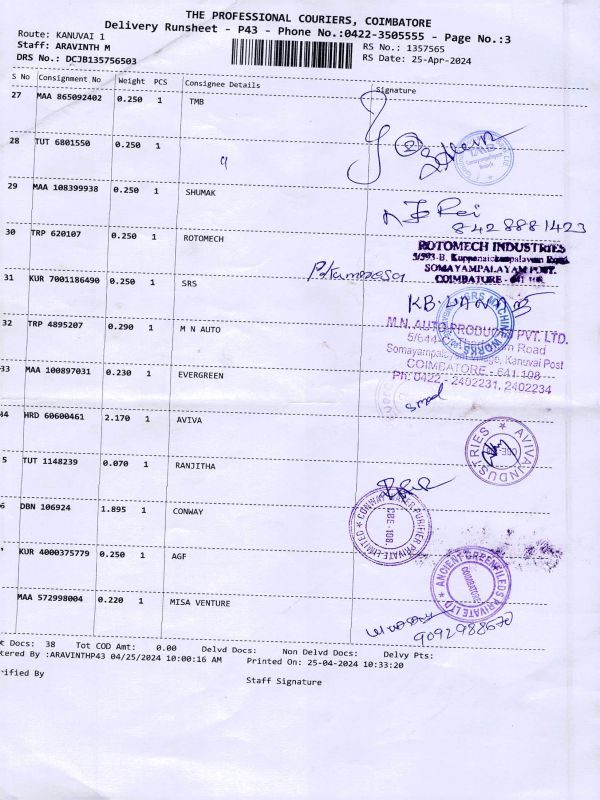 THE PROFESSIONAL COURIERS, COIMBATORE
Delivery Runsheet - P43 - Phone No.:0422-3505555 - Page No.:3
Route: KANUVAI 1
Staff: ARAVINTH M
RS No.: 1357565
DRS No.: DCJB135756503
RS Date: 25-Apr-2024
S No Consignment No Weight PCS Consignee Details Signature
27 MAA 865092402 0.250 1 TMB
28 TUT 6801550 0.250 1
29 MAA 108399938 0.250 1 SHUMAK
8428881423
30 TRP 620107 0.250 1 ROTOMECH
ROTOMECH INDUSTRIES
5/593-B, Kuppanaickenpalayam Road
SOMAYAMPALAYAM POST.
COIMBATORE - 641 108
31 KUR 7001186490 0.250 1 SRS
MACHINE WORKS
32 TRP 4895207 0.290 1 M N AUTO
M.N. AUTO PRODUCTS PVT. LTD.
5/644 Road
Kanuvai Post
COIMBATORE - 641 108
PH: 0422 - 2402231, 2402234
33 MAA 100897031 0.230 1 EVERGREEN
34 HRD 60600461 2.170 1 AVIVA
AVIVA INDUSTRIES
5 TUT 1148239 0.070 1 RANJITHA
6 DBN 106924 1.895 1 CONWAY
CONWAY PURIFIER PRIVATE LIMITED
CBE-108
KUR 4000375779 0.250 1 AGF
ANCIENT GREENFIELDS PRIVATE LTD
COIMBATORE
MAA 572998004 0.220 1 MISA VENTURE
9092988670
Docs: 38 Tot COD Amt: 0.00 Delvd Docs: Non Delvd Docs: Delvy Pts:
tered By :ARAVINTHP43 04/25/2024 10:00:16 AM Printed On: 25-04-2024 10:33:20
rified By
Staff Signature